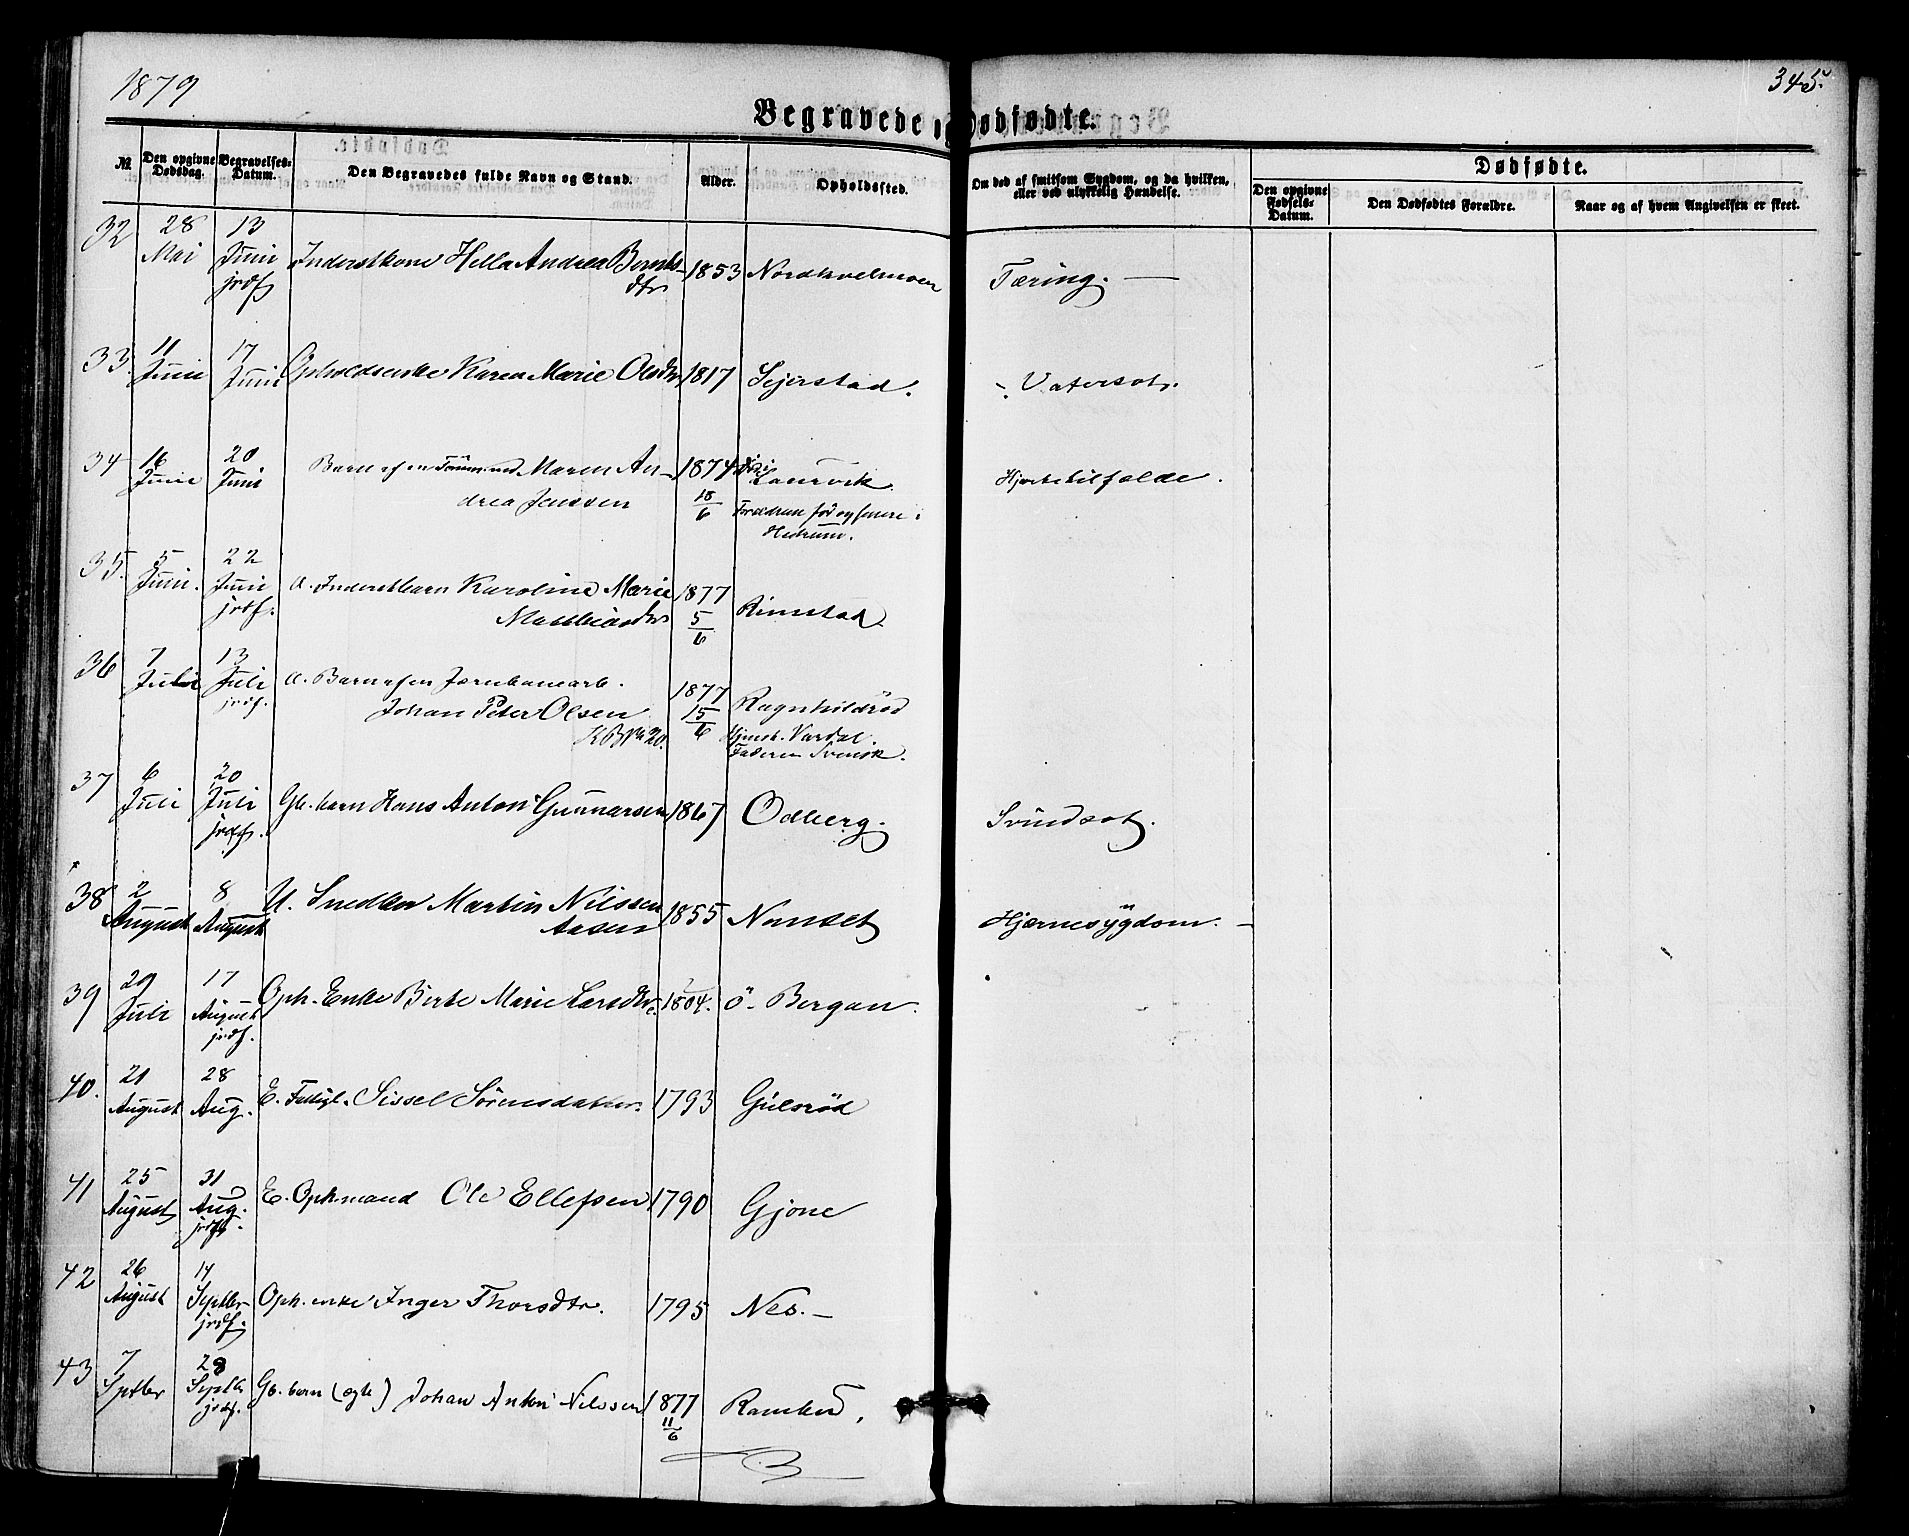 1879
345.
Begravede og Dødfødte.
№
Den opgivne Dødsdag.
Begravelses-Datum.
Den Begravedes fulde Navn og Stand.
Alder.
Opholdssted.
Om død af smitsom Sygdom, og da hvilken, eller ved ulykkelig Hændelse.
Dødfødte.
Den opgivne Fødsels-Datum.
Den Dødfødtes Forældre.
Naar og af hvem Angivelsen er skeet.
32 28 Mai 13 Juni jrdf. Inderstkone Hella Andrea Berntsdtr 1853 Nordkvelmoen Tæring.
33. 11 Juni 17 Juni Opholdsenke Karen Marie Olsdtr 1817 Sejerstad. Vatersot.
34 16 Juni 20 Juni Barn af en Tømmermd Maren Andrea Jenssen 1874 18/6 Laurvik
Forældrene før og senere i Hedrum. Hjertetilfælde.
35. 5 Juni. 22 Juni jrdf. U. Inderstbarn Karoline Marie Mathiasdtr 1877 5/6 Rimstad
36 7 Juli 13 Juli jrdf. U. Barn af en Jernbanearb. Johan Peter Olsen KB № 20. 1877 15/6 Ragnhildrød
Hjemst. Vardal Faderen Svensk.
37 6 Juli 20 Juli jrdf. Gb. barn Hans Anton Gunnarsen 1867 Odberg. Svindsot.
38 2 August 8 August U. Snedker Martin Nilssen Aasen 1855 Nanset Hjernesygdom.
39 29 Juli 17 August jrdf. Oph. Enke Birte Marie Larsdtr. 1804. Ö. Bergan.
40. 21 August 28 Aug. E. Fattigl. Sissel Sörensdatter 1793 Gulsröd
41 25 August 31 Aug. jrdf. E. Oph.mand Ole Ellefsen 1790 Gjone
42 26 August 14 Septbr jrdf. Oph. enke Inger Thorsdtr. 1795 Nes.
43 7 Sptbr 28 Septbr jrdf. Gb. barn (ægte) Johan Anton Nilssen 1877 11/6